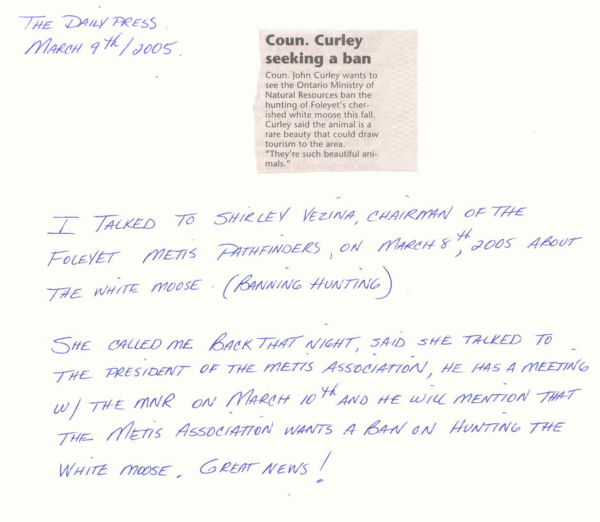 THE DAILY PRESS.
MARCH 9th/2005.
Coun. Curley
seeking a ban
Coun. John Curley wants to
see the Ontario Ministry of
Natural Resources ban the
hunting of Foleyet's cher-
ished white moose this fall.
Curley said the animal is a
rare beauty that could draw
tourism to the area.
"They're such beautiful ani-
mals."
I TALKED TO SHIRLEY VEZINA, CHAIRMAN OF THE
FOLEYET METIS PATHFINDERS, ON MARCH 8th, 2005 ABOUT
THE WHITE MOOSE. (BANNING HUNTING)
SHE CALLED ME BACK THAT NIGHT, SAID SHE TALKED TO
THE PRESIDENT OF THE METIS ASSOCIATION, HE HAS A MEETING
W/ THE MNR ON MARCH 10th AND HE WILL MENTION THAT
THE METIS ASSOCIATION WANTS A BAN ON HUNTING THE
WHITE MOOSE. GREAT NEWS!